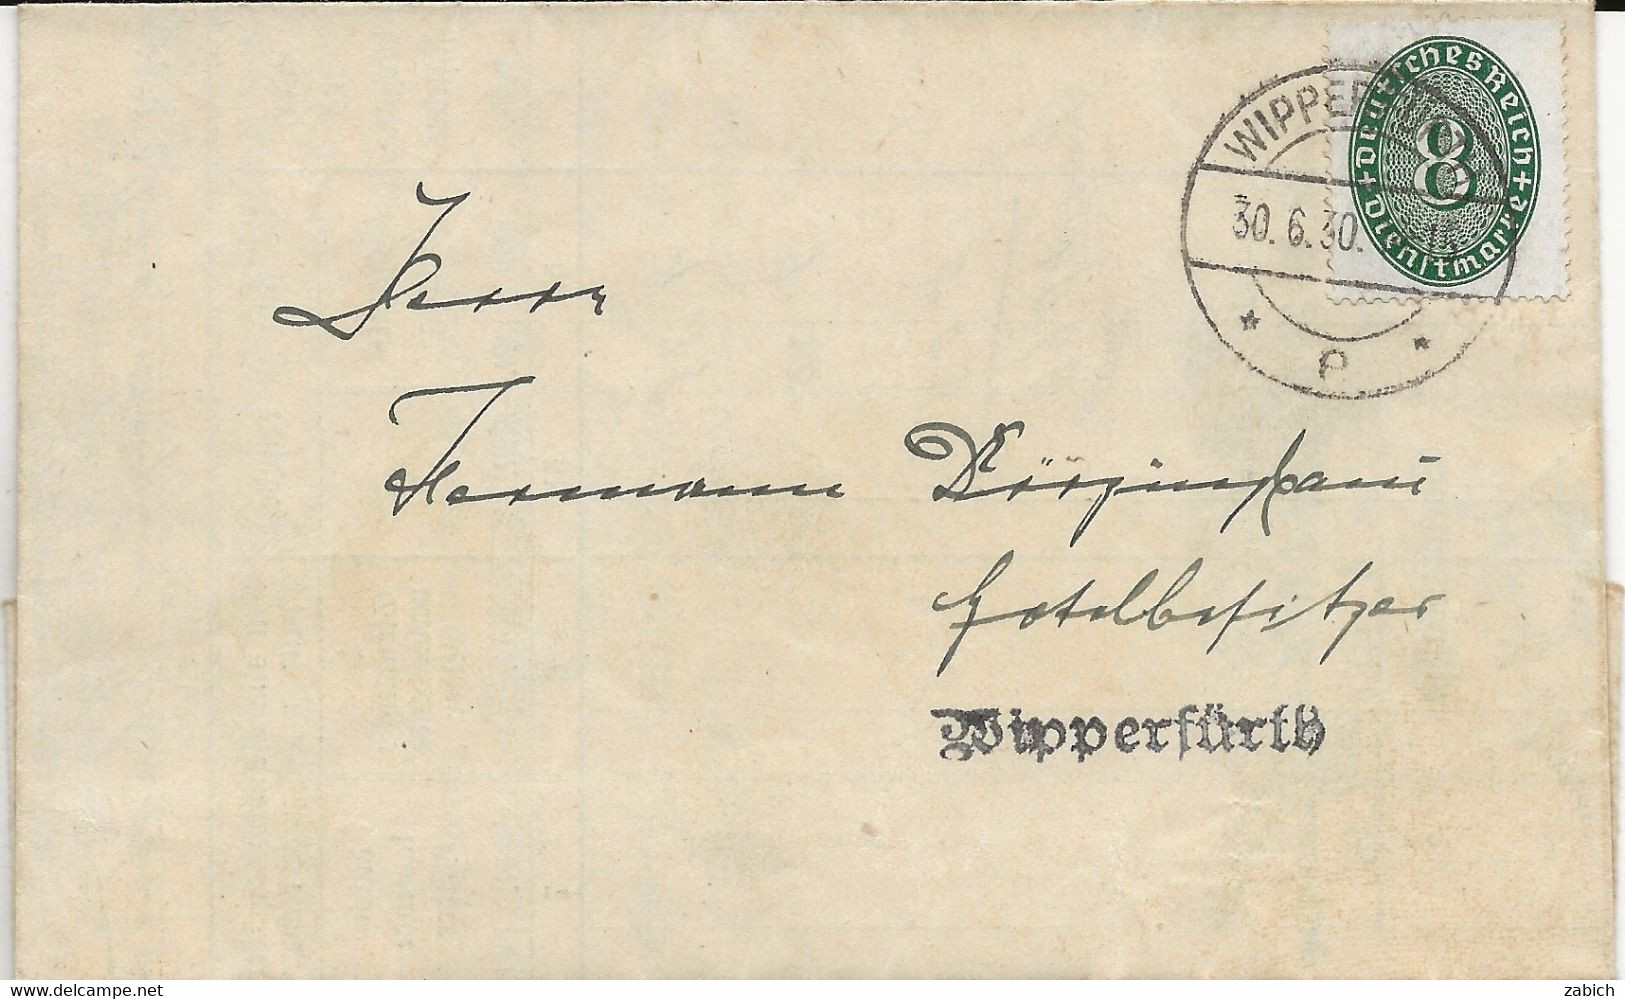 Deutsches Reich
8
Dienstmarke
WIPPERFÜRTH
30.6.30.
e
Herrn
Hermann
Hotelbesitzer
Wipperfürth
www.delcampe.net
zabich